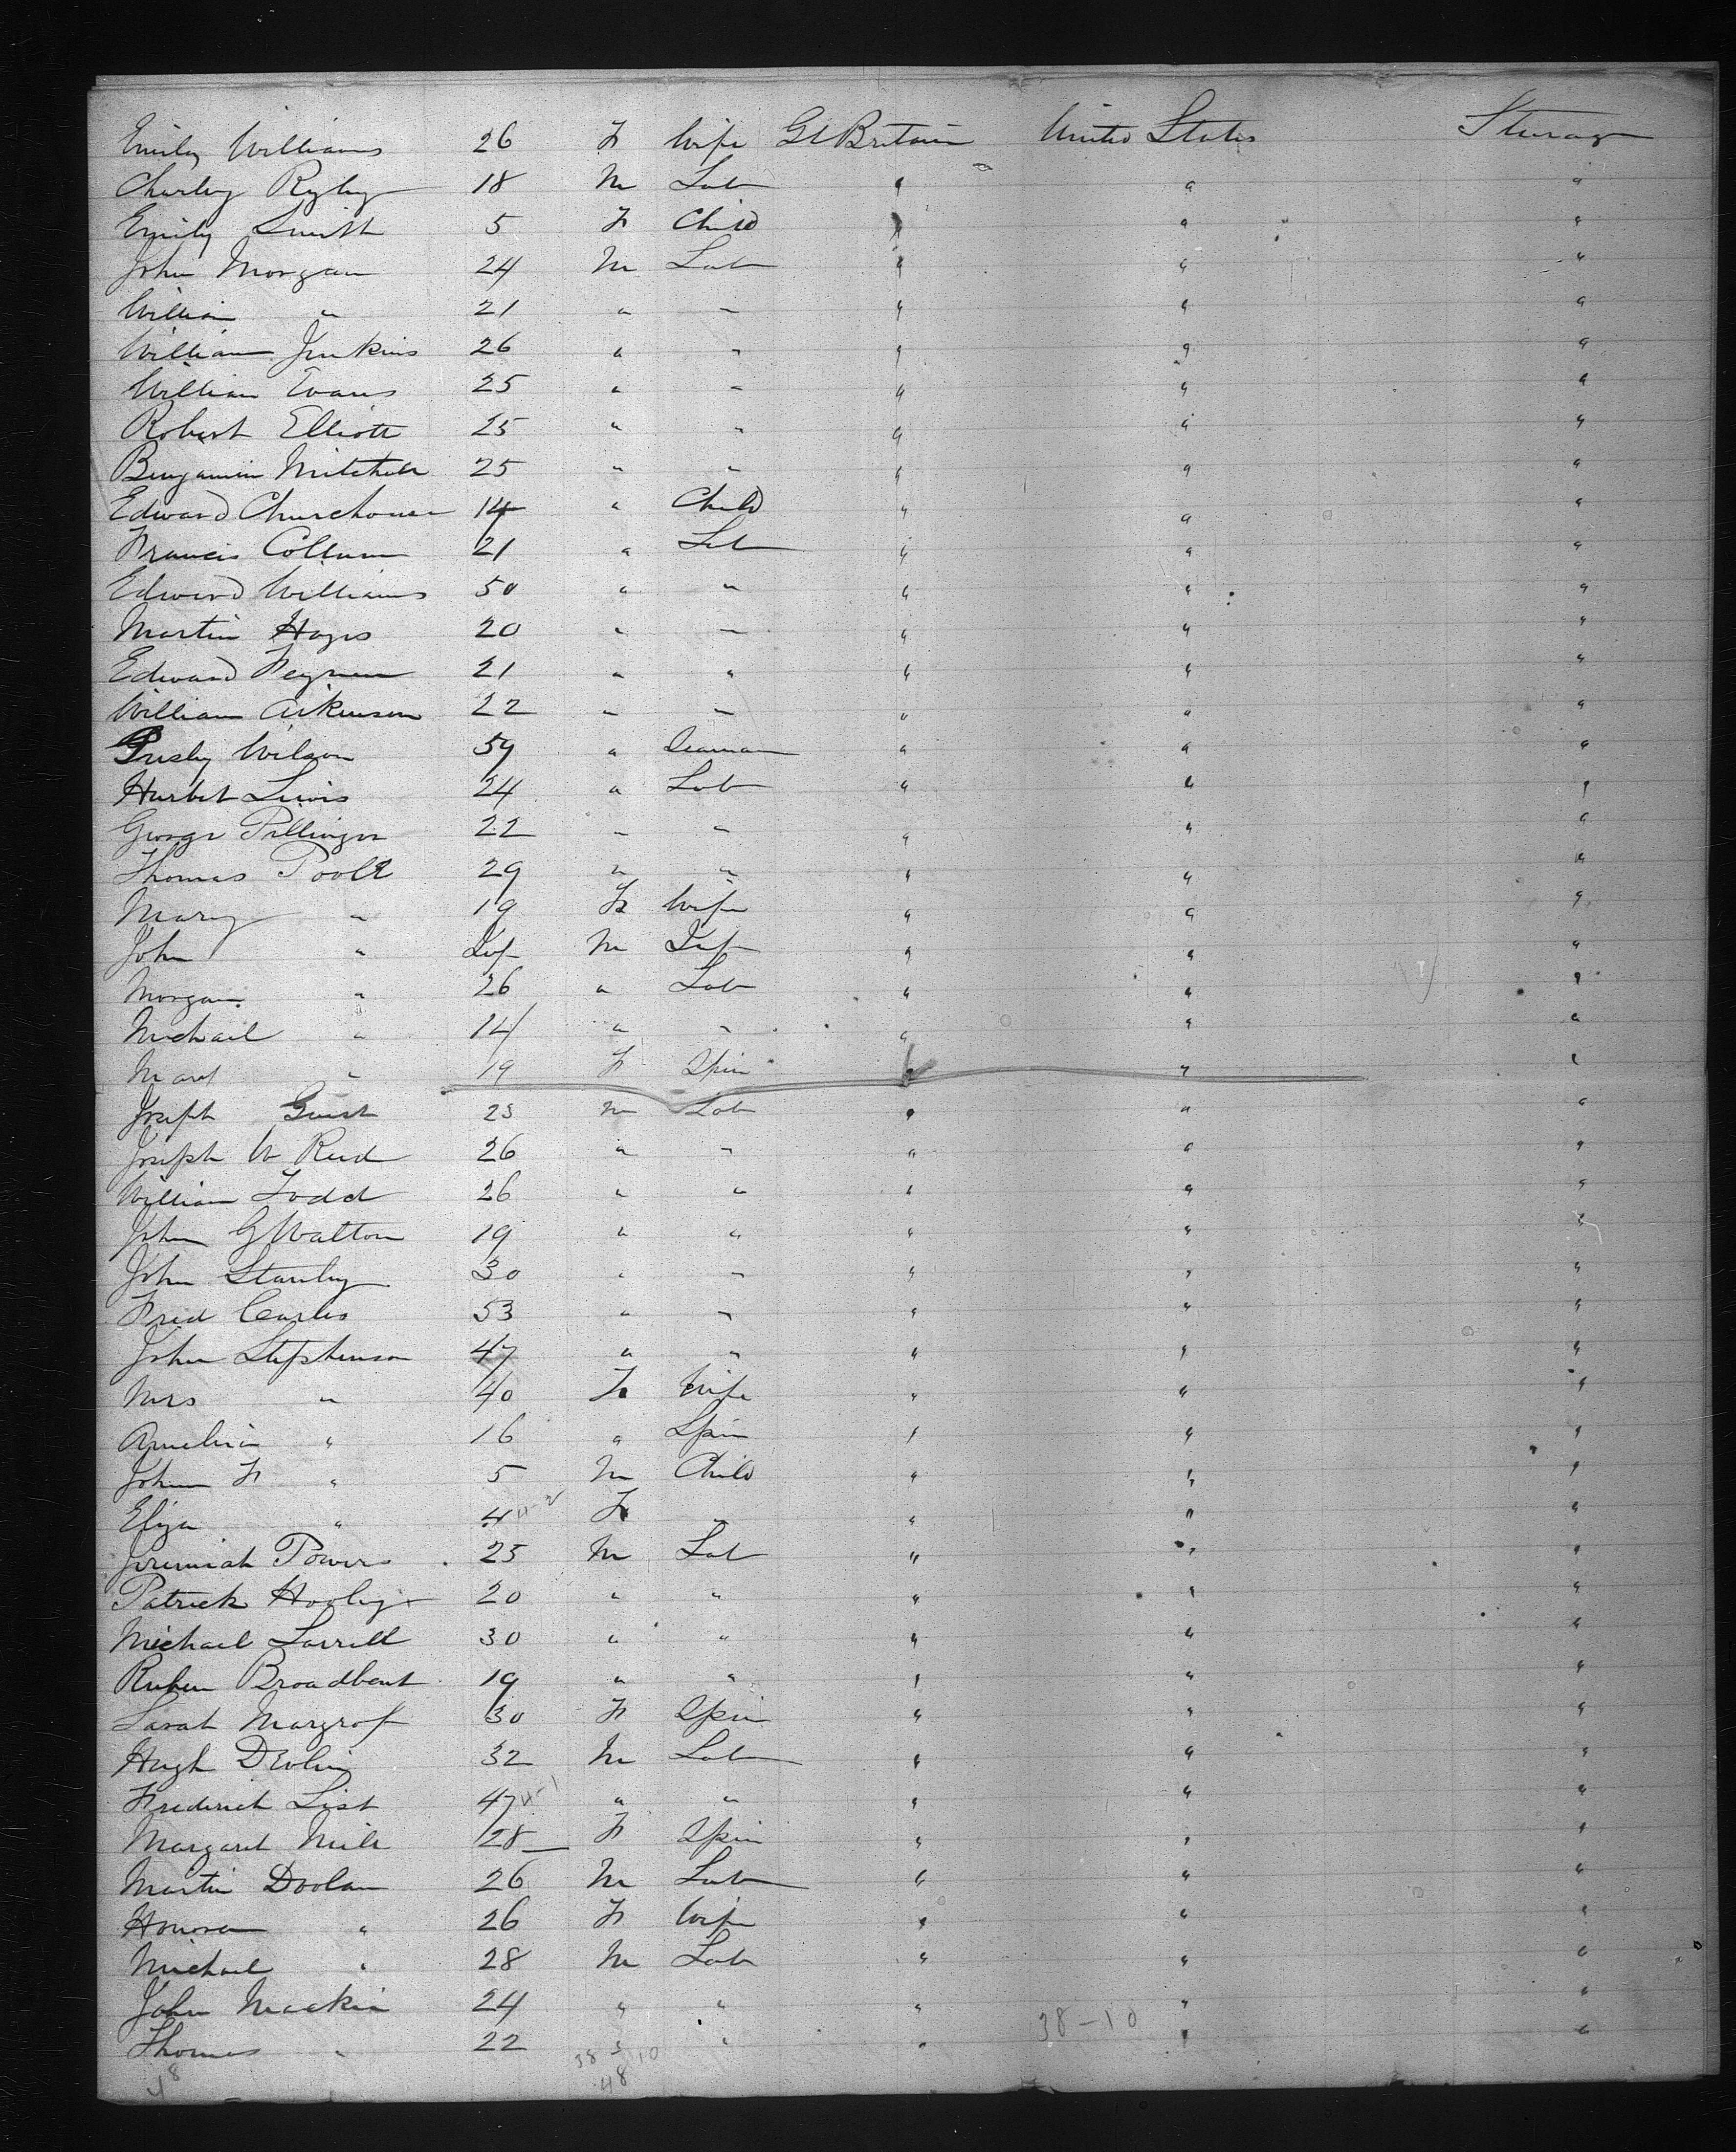 Emily Williams 26 F Wife Gt Britain United States Sterage
Charley Rigby 18 M Lab " " "
Emily Smith 5 F Child " " "
John Morgan 24 M Lab " " "
William " 21 " " " " "
William Jenkins 26 " " " " "
William Evans 25 " " " " "
Robert Elliott 25 " " " " "
Benjamin Mitchell 25 " " " " "
Edward Churchouse 14 " Child " " "
Francis Collum 21 " Lab " " "
Edward Williams 50 " " " " "
Martin Hayes 20 " " " " "
Edward 21 " " " " "
William Aikinson 22 " " " " "
Wilson 59 " Seaman " " "
Hurbet Lewis 24 " Lab " " "
George Pillinger 22 " " " " "
Thomas Poole 29 " " " " "
Mary " 19 F Wife " " "
John " Inf M Inf " " "
Morgan " 26 " Lab " " "
Michael " 14 " " " " "
Mary " 19 F Spin " " "
Joseph Guest 23 M Lab " " "
Joseph W Reed 26 " " " " "
William Todd 26 " " " " "
John G Walton 19 " " " " "
John Stanley 30 " " " " "
Fred Carles 53 " " " " "
John Stephenson 47 " " " " "
Mrs " 40 F Wife " " "
Amelia " 16 " Spin " " "
John F " 5 M Child " " "
Eliza " 4 F " " " "
Jeremiah Powers 25 M Lab " " "
Patrick Hooley 20 " " " " "
Michael Farrell 30 " " " " "
Ruben Broadbent 19 " " " " "
Sarah Margrof 30 F Spin " " "
Hugh Devlin 32 M Lab " " "
Frederick List 47 " " " " "
Margaret 28 F Spin " " "
Martin Doolan 26 M Lab " " "
Honora " 26 F Wife " " "
Michael " 28 M Lab " " "
John Mackin 24 " " " " "
Thomas " 22 " " " " "
38-10
48
48